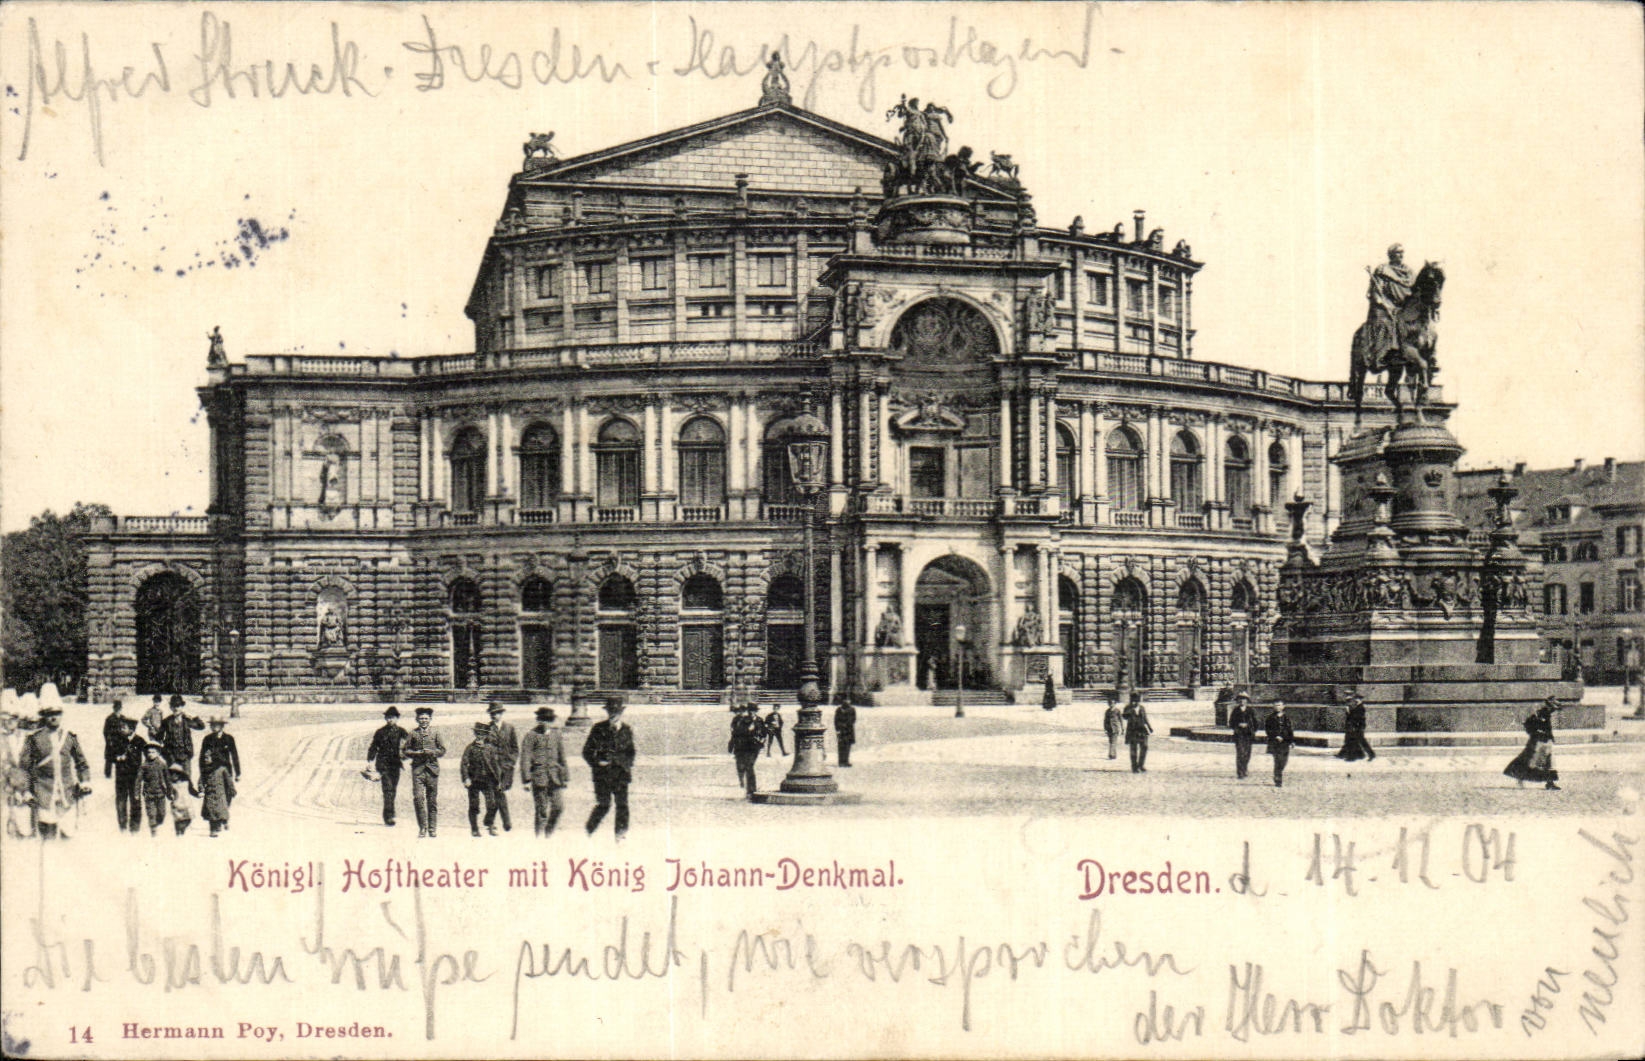 Alfred Struck. Dresden. Hauptpostlagernd.
Königl. Hoftheater mit König Johann-Denkmal.
Dresden. d. 14. 12. 04
Die besten Grüße sendet, wie versprochen
der Herr Doktor
von neulich.
14 Hermann Poy, Dresden.